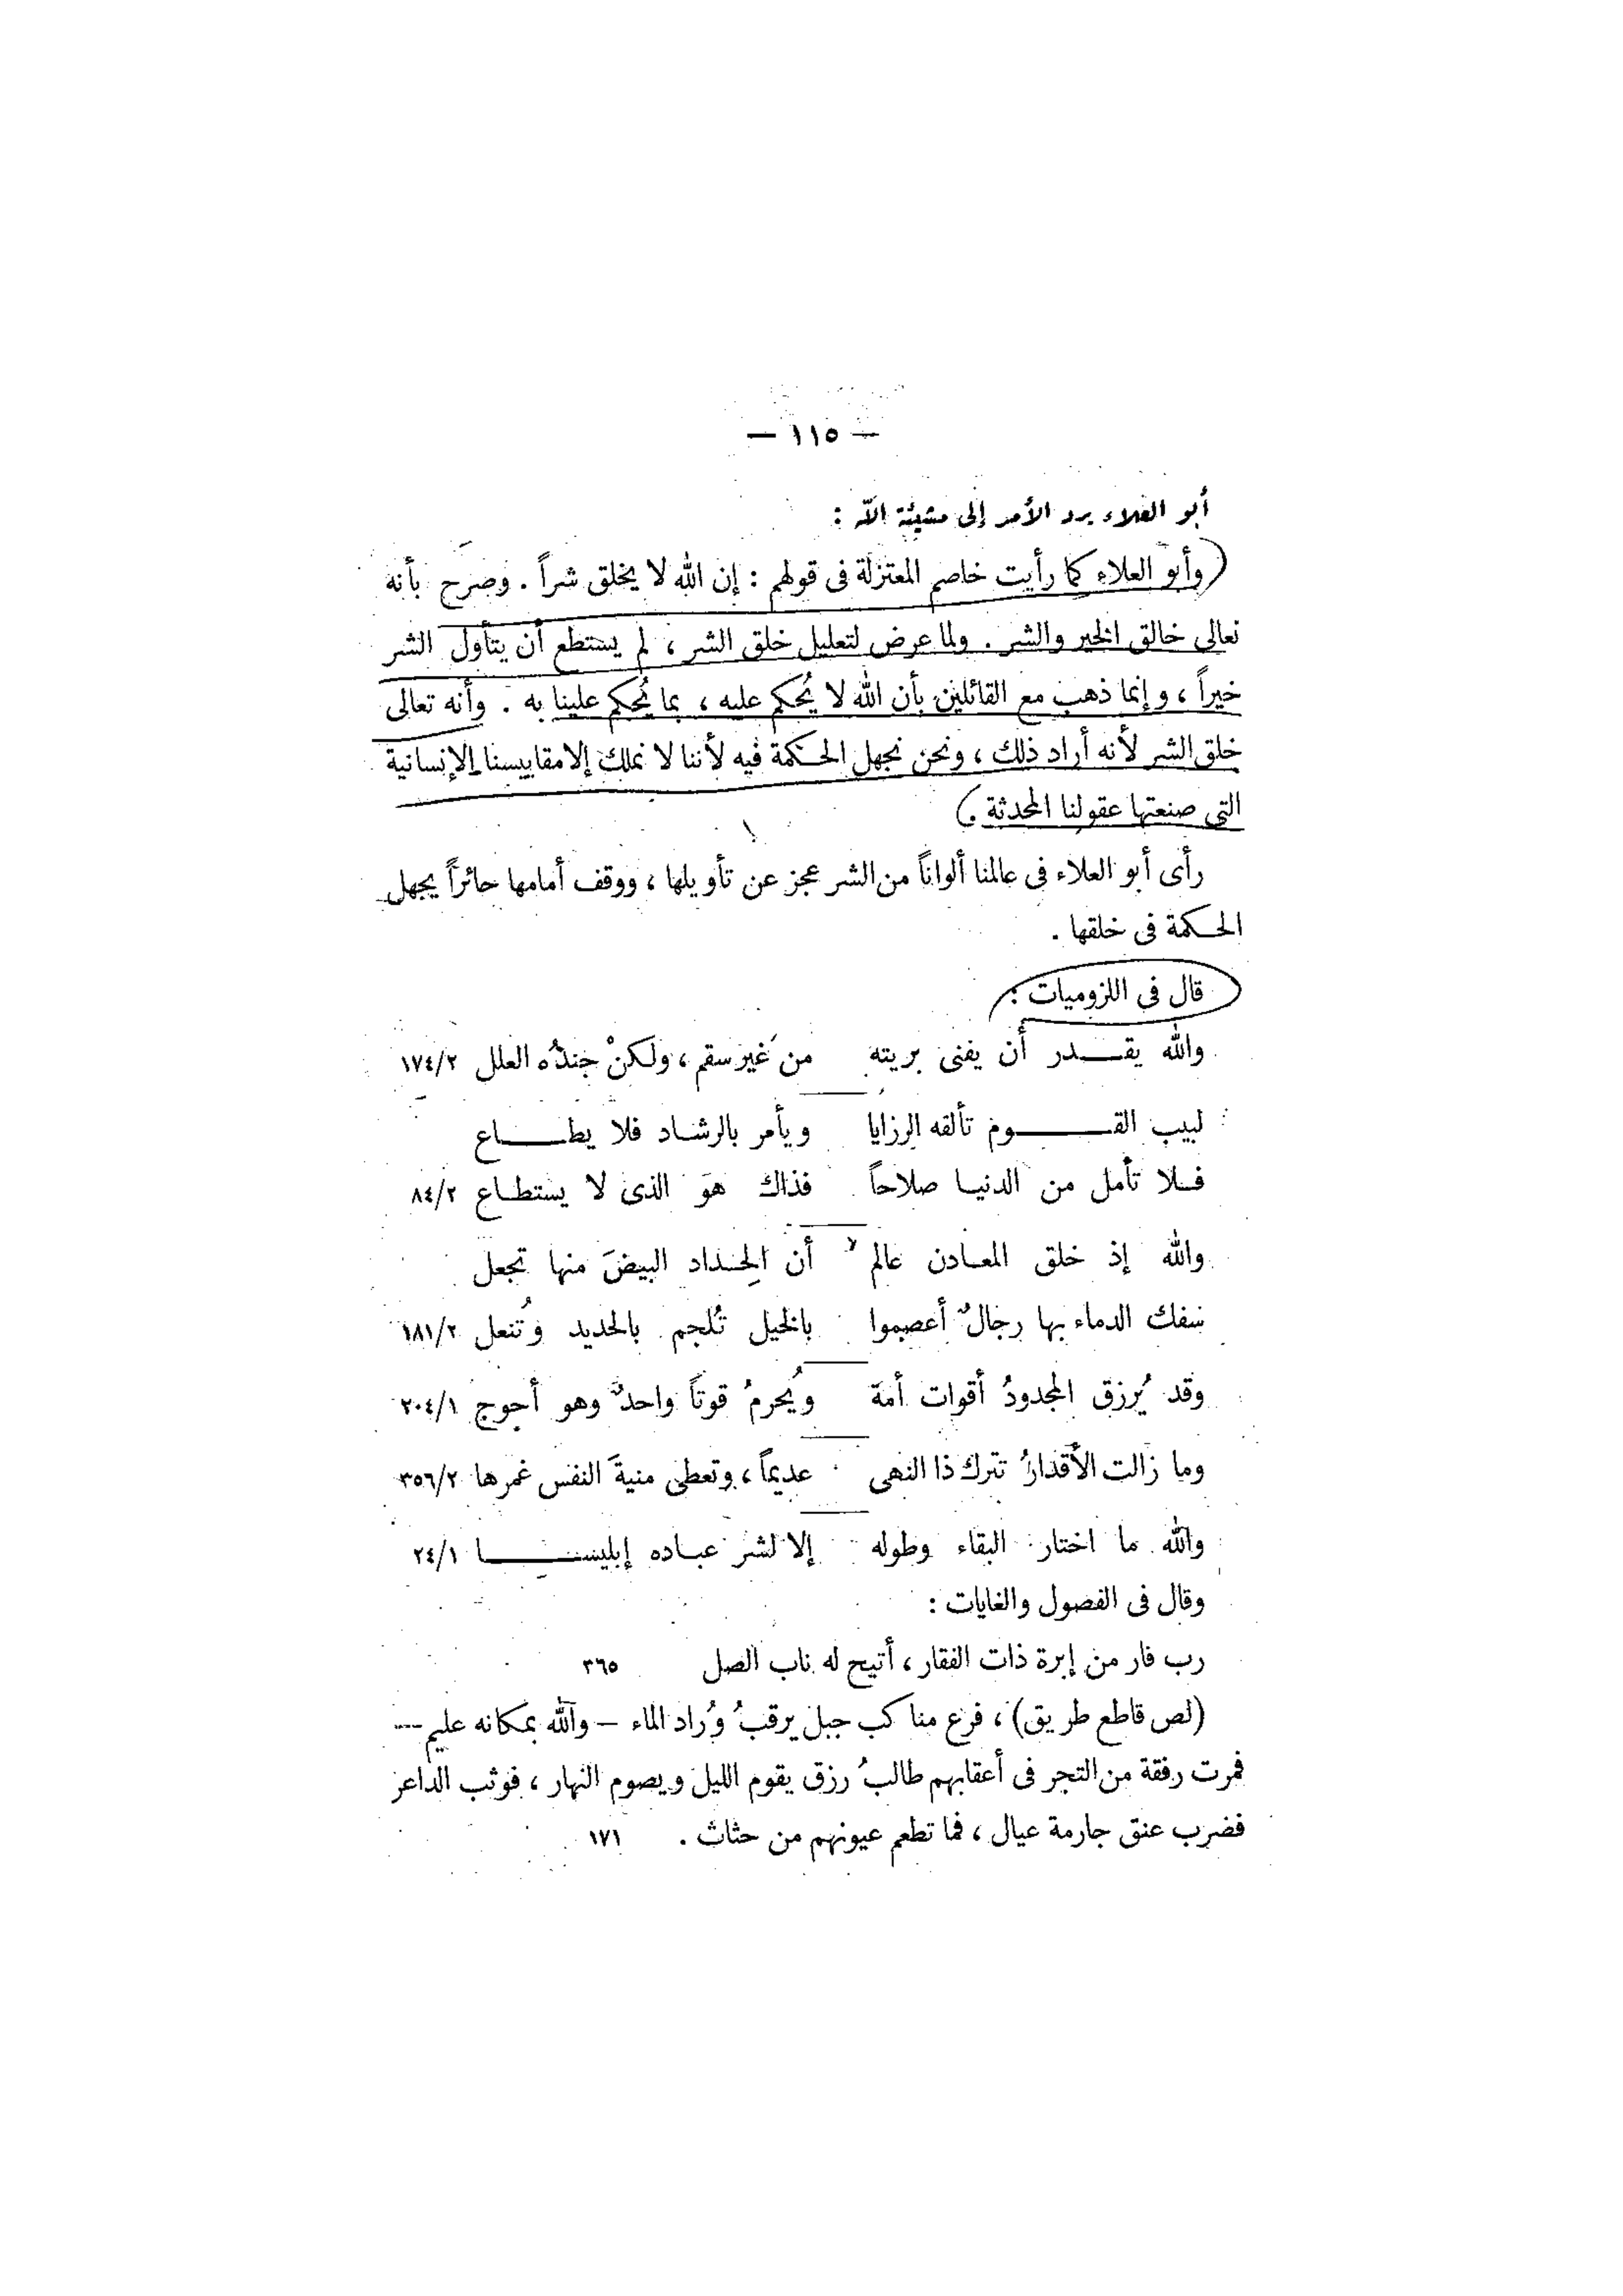 — ١١٥ —
أبو العلاء يرد الأمر إلى مشيئة الله :
(وأبو العلاء كما رأيت خاصم المعتزلة فى قولهم : إن الله لا يخلق شراً . وصرح بأنه
تعالى خالق الخير والشر . ولما عرض لتعليل خلق الشر ، لم يستطع أن يتأول الشر
خيراً ، وإنما ذهب مع القائلين بأن الله لا يُحكم عليه ، بما يُحكم علينا به . وأنه تعالى
خلق الشر لأنه أراد ذلك ، ونحن نجهل الحكمة فيه لأننا لا نملك إلا مقاييسنا الإنسانية
التى صنعتها عقولنا المحدثة .)
رأى أبو العلاء فى عالمنا ألواناً من الشر عجز عن تأويلها ، ووقف أمامها حائراً يجهل
الحكمة فى خلقها .
قال فى اللزوميات :
والله يقدر أن يفنى بريته من غير سقم ، ولكنْ جندُه العلل ١٧٤/٢
لبيب القوم تألفه الرزايا ويأمر بالرشاد فلا يطاع
فلا تأمل من الدنيا صلاحاً فذاك هو الذى لا يستطاع ٨٤/٢
والله إذ خلق المعادن عالم أن الحِداد البيضَ منها تجعل
سفك الدماء بها رجالٌ أعصموا بالخيل تُلجم بالحديد وتُنعل ١٨١/٢
وقد يُرزق المجدودُ أقوات أمة ويُحرمُ قوتاً واحدٌ وهو أحوج ٢٠٤/١
وما زالت الأقدارُ تترك ذا النهى عديماً ، وتعطى منيةَ النفس غمرها ٣٥٦/٢
والله ما اختار البقاء وطوله إلا لشر عباده إبليسا ٢٤/١
وقال فى الفصول والغايات :
رب فار من إبرة ذات الفقار ، أتيح له ناب الصل ٣٦٥
(لص قاطع طريق) ، فرع مناكب جبل يرقبُ وُراد الماء – والله بمكانه عليم –
فمرت رفقة من التجر فى أعقابهم طالبُ رزق يقوم الليل ويصوم النهار ، فوثب الداعر
فضرب عنق جارمة عيال ، فما تطعم عيونهم من حثاث . ١٧١